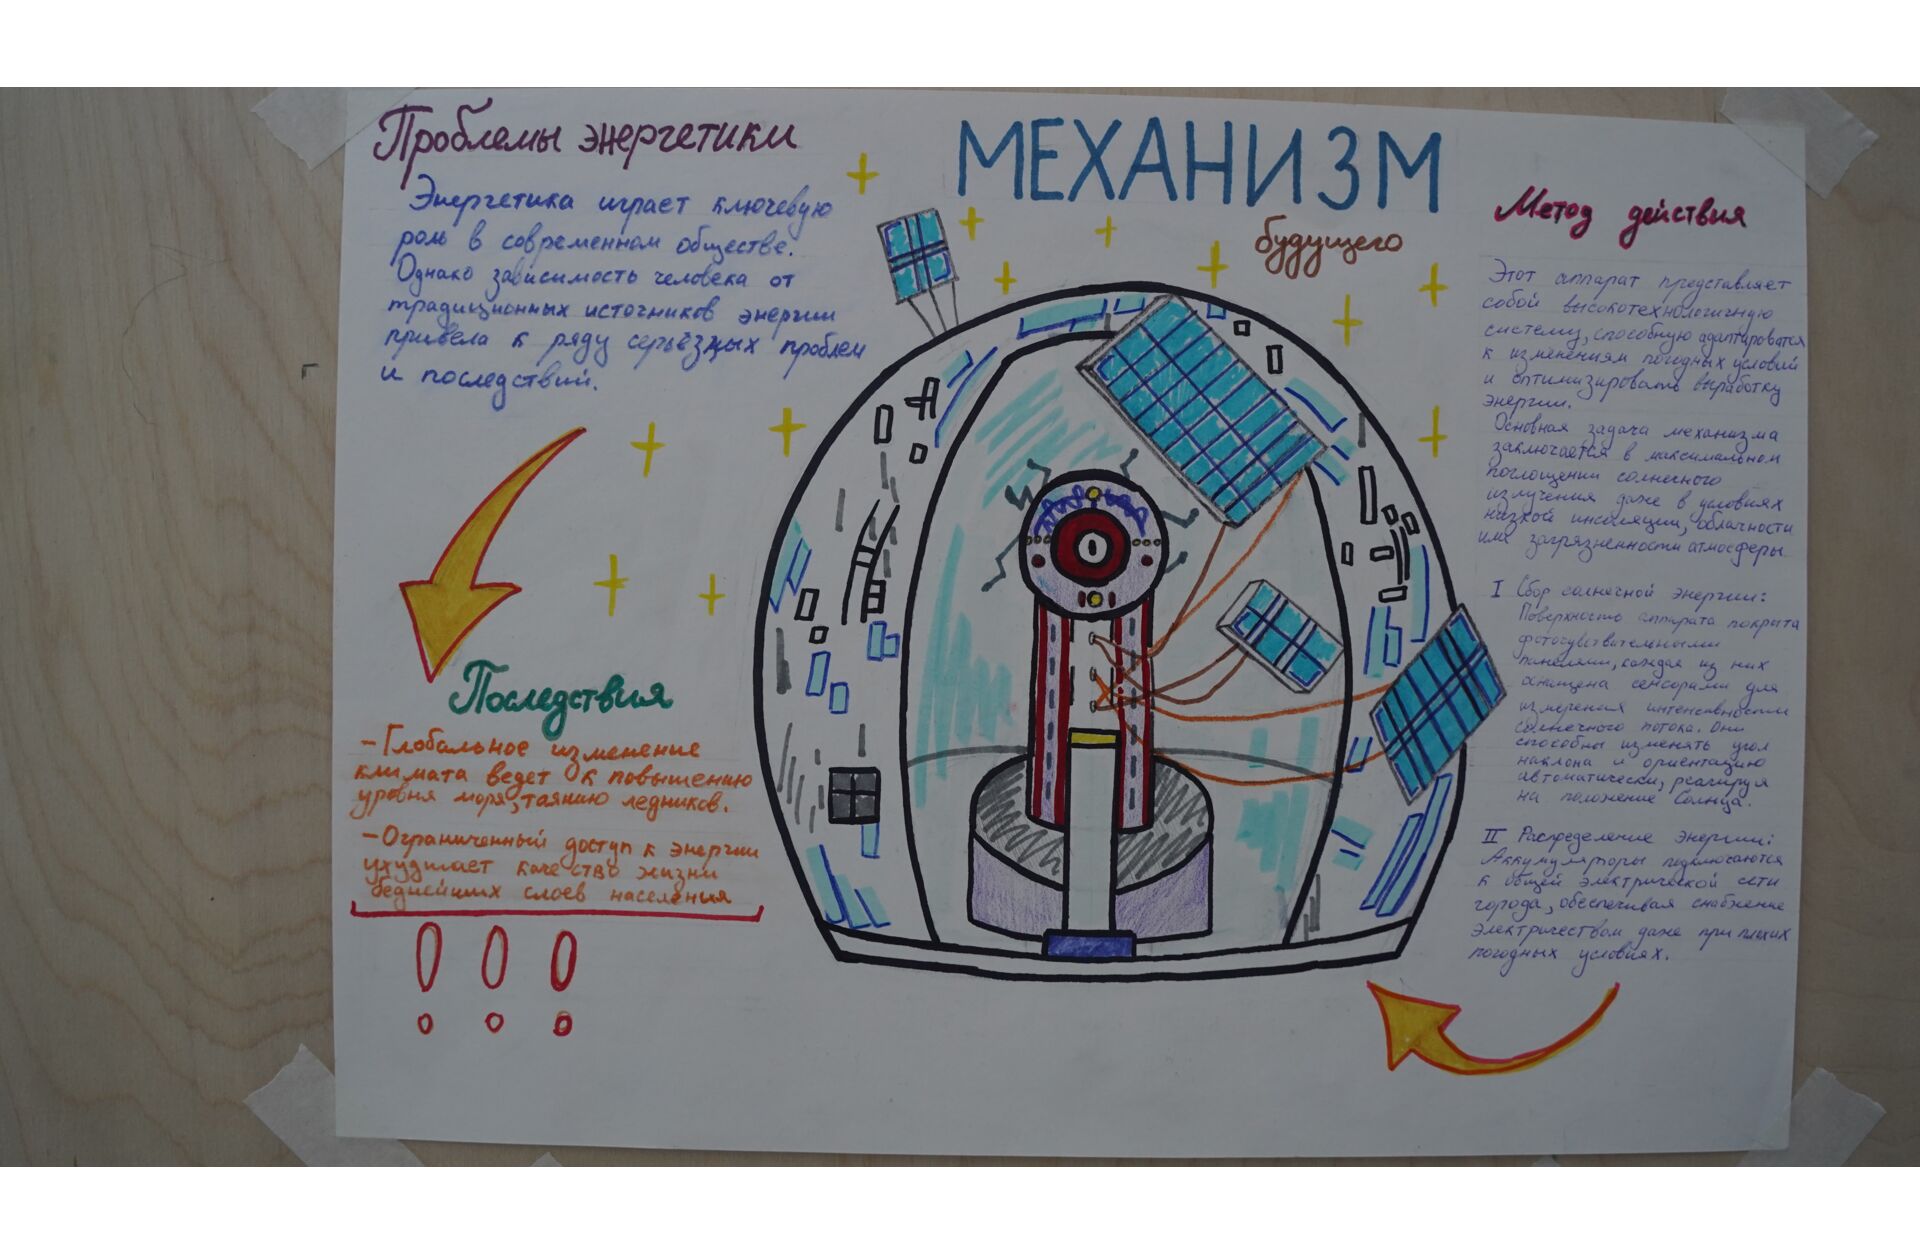 Проблемы энергетики
Энергетика играет ключевую
роль в современном обществе.
Однако зависимость человека от
традиционных источников энергии
привела к ряду серьёзных проблем
и последствий.
Последствия
- Глобальное изменение
климата ведет к повышению
уровня моря, таянию ледников.
- Ограниченный доступ к энергии
ухудшает качество жизни
беднейших слоев населения
!!!
МЕХАНИЗМ
будущего
Метод действия
Этот аппарат представляет
собой высокотехнологичную
систему, способную адаптироваться
к изменениям погодных условий
и оптимизировать выработку
энергии.
Основная задача механизма
заключается в максимальном
поглощении солнечного
излучения даже в условиях
низкой инсоляции, облачности
или загрязненности атмосферы
I Сбор солнечной энергии:
Поверхность аппарата покрыта
фоточувствительными
панелями, каждая из них
оснащена сенсорами для
измерения интенсивности
солнечного потока. Они
способны изменять угол
наклона и ориентацию
автоматически, реагируя
на положение Солнца.
II Распределение энергии:
Аккумуляторы подключаются
к общей электрической сети
города, обеспечивая снабжение
электричеством даже при плохих
погодных условиях.